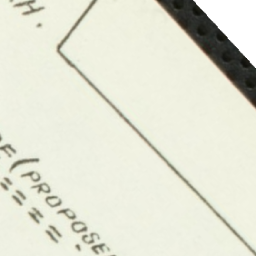 H.
(PROPOSE